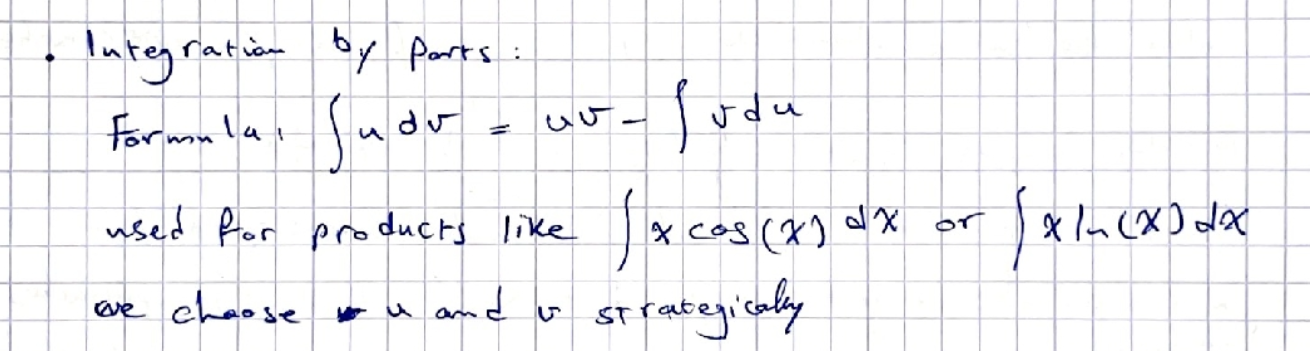 . Integration by parts :
Formula: ∫ u dv = uv - ∫ v du
used for products like ∫ x cos(x) dx or ∫ x ln(x) dx
we choose u and v strategically